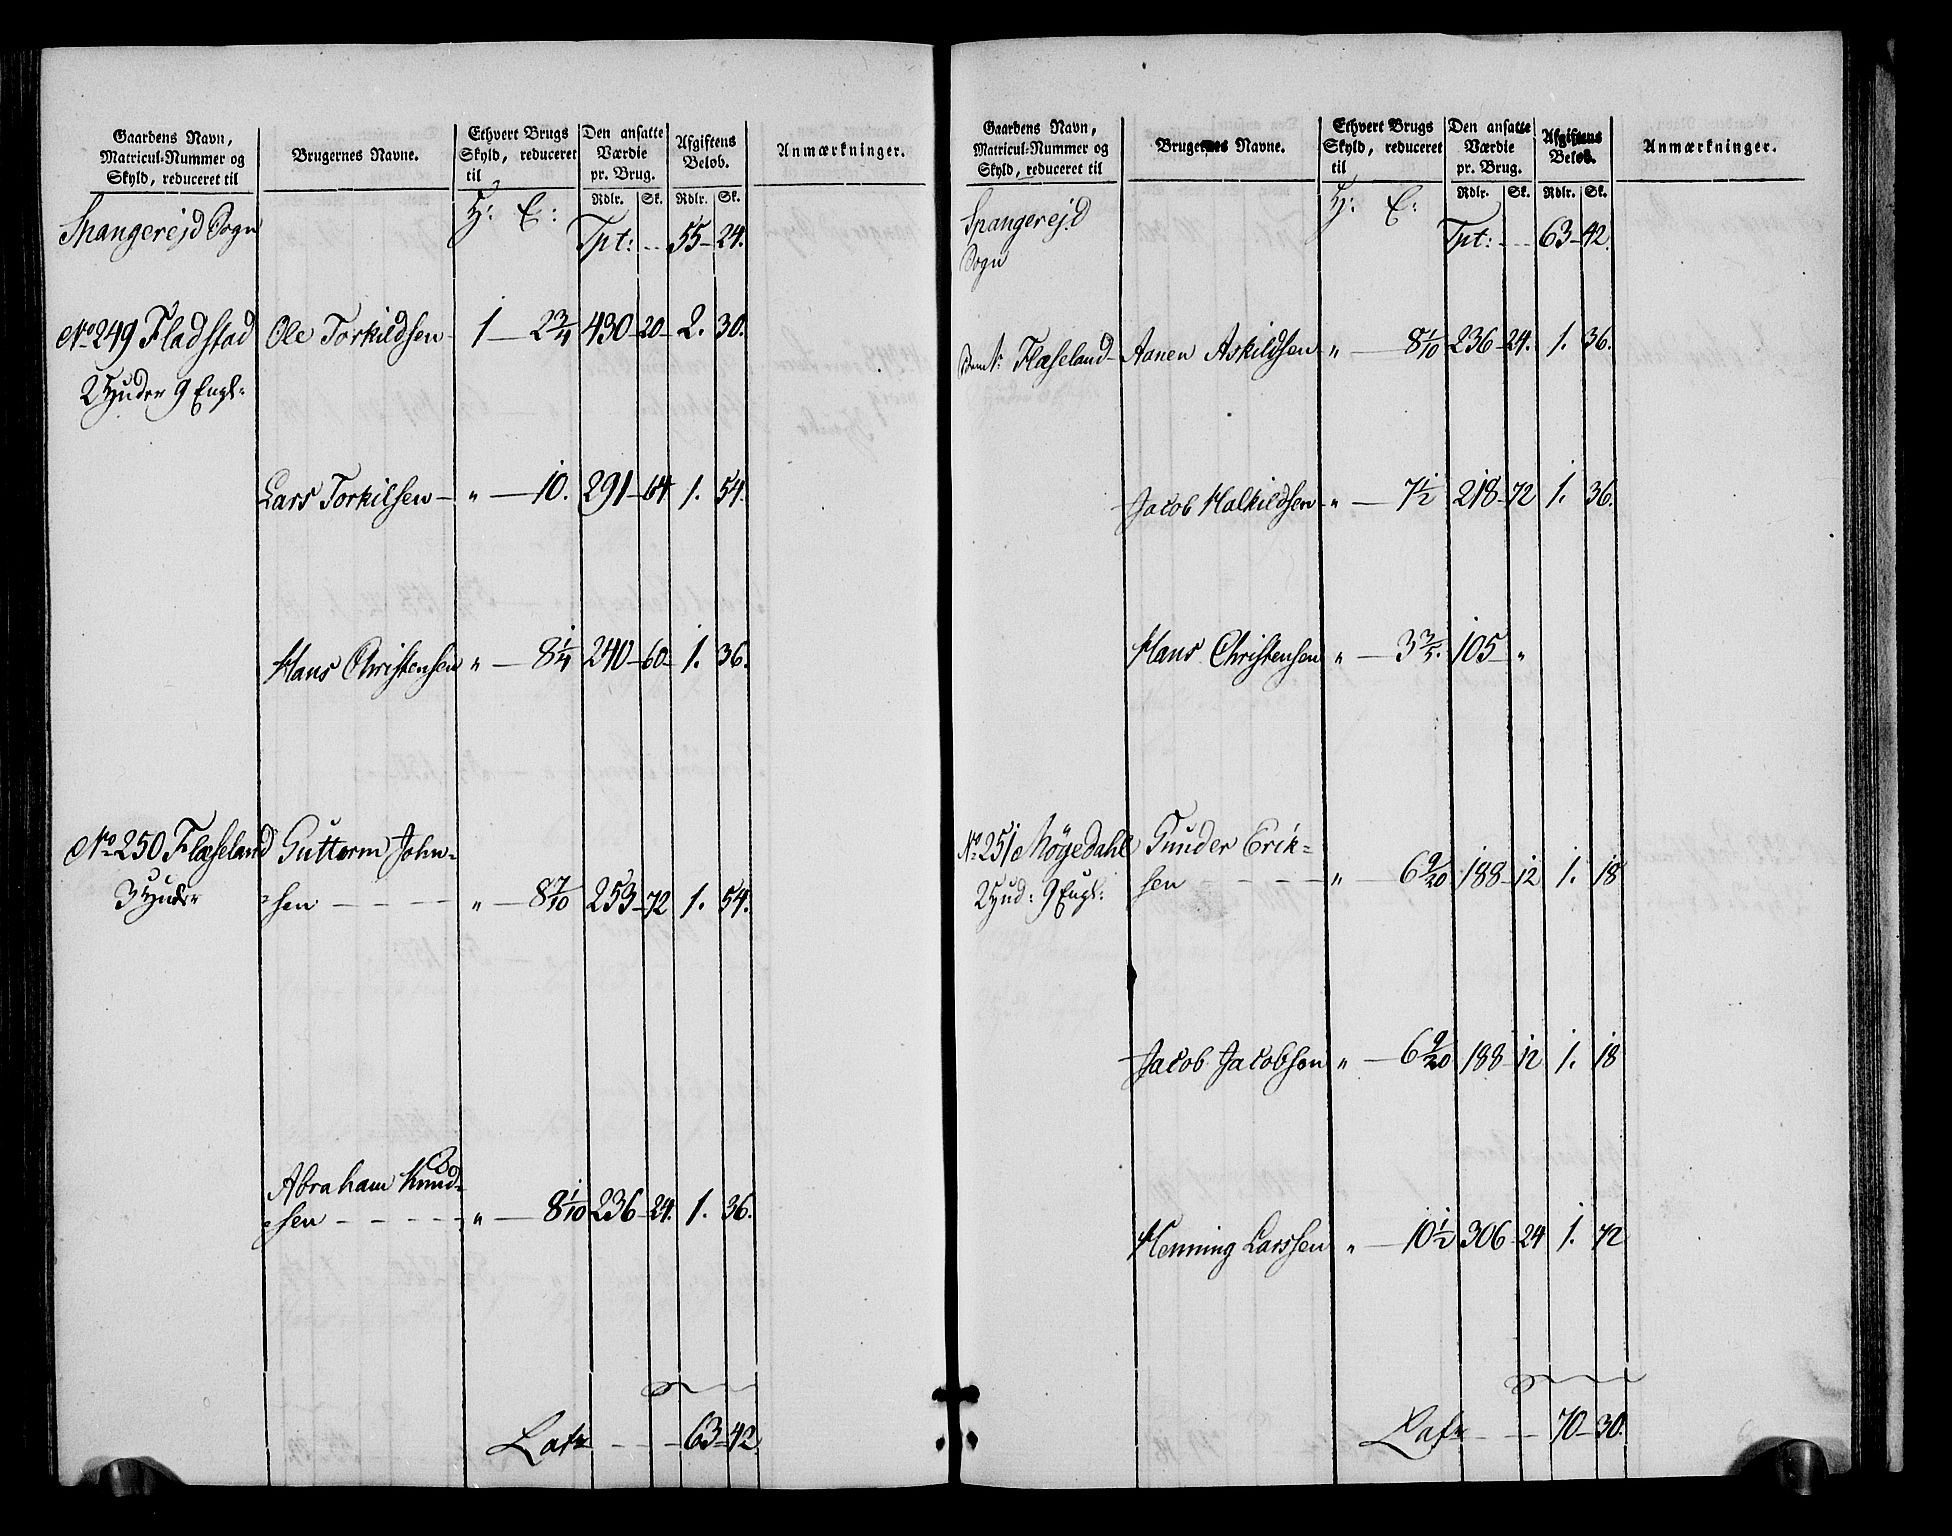 Gaardens Navn,
Matricul-Nummer og
Skyld, reduceret til
Brugernes Navne.
Ethvert Brugs
Skyld, reduceret
til
Den ansatte
Værdie
pr. Brug.
Afgiftens
Beløb.
Anmærkninger.
Rdlr. Sk. Rdlr. Sk.
Spangerejd Sogn H: E: Tpt: - - 55 - 24.
No 249 Fladstad Ole Torkildsen - 1 - 2 3/4 430 - 20 - 2. 30.
2 Huder 9 Engl:
Lars Torkilsen - " - 10. 291 - 64 1. 54.
Hans Christensen " - 8 1/4 240 - 60 - 1. 36.
No 250 Flæseland Guttorm John-
3 Huder sen - - - - " - 8 7/10 253 - 72 1. 54.
Abraham Knud-
sen - - - - - " - 8 1/10 236 - 24. 1. 36.
Lat - - - 63 - 42
Gaardens Navn,
Matricul-Nummer og
Skyld, reduceret til
Brugernes Navne.
Ethvert Brugs
Skyld, reduceret
til
Den ansatte
Værdie
pr. Brug.
Afgiftens
Beløb.
Anmærkninger.
Rdlr. Sk. Rdlr. Sk.
Spangerejd H: E: Tpt: - - 63 - 42.
Sogn
Flæseland - Aanen Askildsen " - 8 1/10 236 - 24. 1. 36.
Jacob Halkildsen - " - 7 1/2 218 - 72 1. 36.
Hans Christensen " - 3 3/5. 105 - "
No 251 Høyedahl Gunder Erik-
2 Hud: 9 Engl: sen - - - - " - 6 9/20 188 - 12 1. 18
Jacob Jacobsen " - 6 9/20 188 - 12 1. 18
Henning Larssen " - 10 1/2 306 - 24 1. 72
Lat - - - 70 - 30.